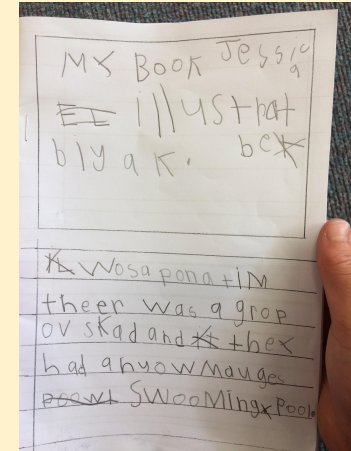 MY BOOK Jessica
illUStrat
blyak. bex
Wosa pona tiM
theer was a grop
ov skad and thex
had anyow Mauges
SWooMing Pool.